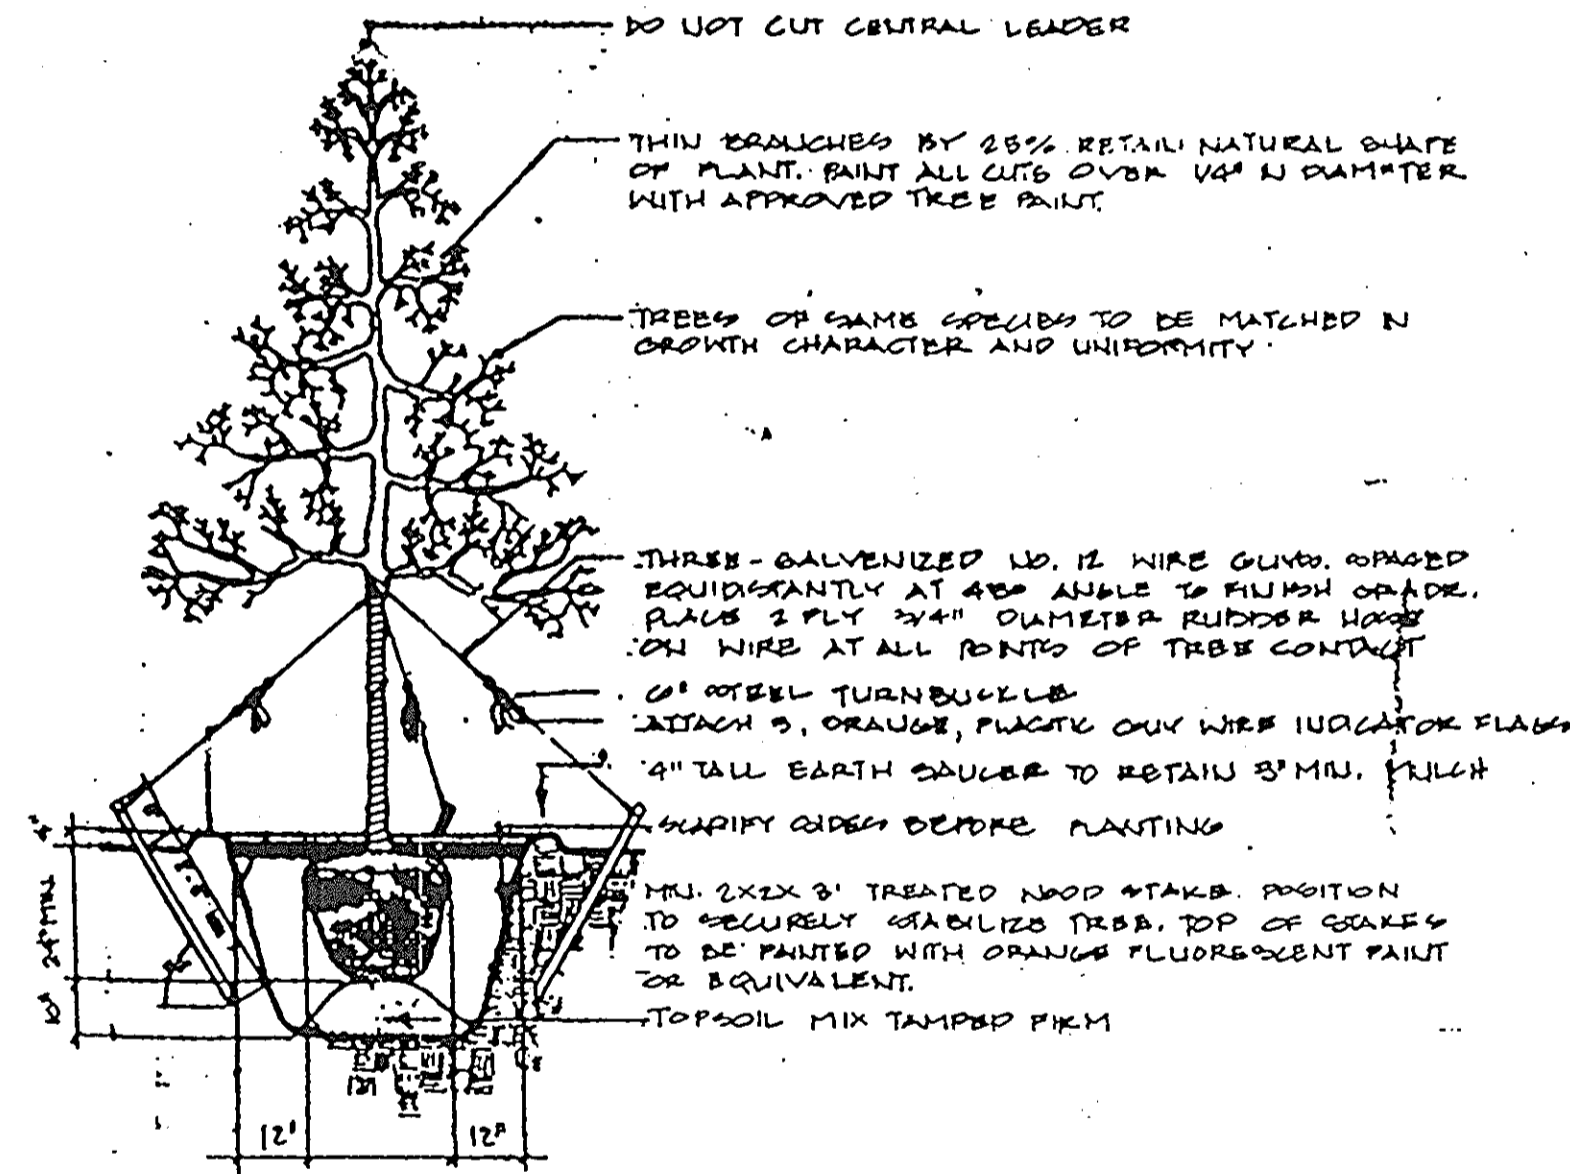 DO NOT CUT CENTRAL LEADER
THIN BRANCHES BY 25% RETAIN NATURAL SHAPE
OF PLANT. PAINT ALL CUTS OVER 1/4" IN DIAMETER
WITH APPROVED TREE PAINT.
TREES OF SAME SPECIES TO BE MATCHED IN
GROWTH CHARACTER AND UNIFORMITY.
THREE - GALVENIZED NO. 12 WIRE GUYS. SPACED
EQUIDISTANTLY AT 45° ANGLE TO FINISH GRADE.
PLACE 2 PLY 3/4" DIAMETER RUBBER HOSE
ON WIRE AT ALL POINTS OF TREE CONTACT
6" STEEL TURNBUCKLE
ATTACH 3, ORANGE, PLASTIC GUY WIRE INDICATOR FLAGS
4" TALL EARTH SAUCER TO RETAIN 3" MIN. MULCH
4"
SCARIFY SIDES BEFORE PLANTING
24" MIN.
MIN. 2X2X 3' TREATED WOOD STAKE. POSITION
TO SECURELY STABILIZE TREE. TOP OF STAKES
TO BE PAINTED WITH ORANGE FLUORESCENT PAINT
OR EQUIVALENT.
10"
TOPSOIL MIX TAMPED FIRM
12" 12"